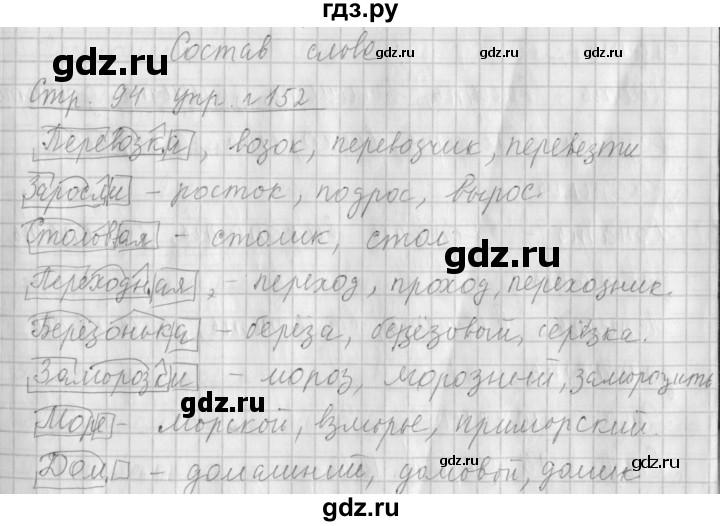 гдз.ру
Состав слова
Стр. 94 упр. 152
Перевозка, возок, перевозчик, перевезти
Заросли - росток, подрос, вырос.
Столовая - столик, стол.
Переходная, - переход, проход, переходник.
Берёзонька - берёза, берёзовый, берёзка.
Заморозки - мороз, морозный, заморозить
Море - морской, взморье, приморский.
Дом - домашний, домовой, домик
gdz.ru
gdz.ru
gdz.ru
gdz.ru
gdz.ru
gdz.ru
gdz.ru
gdz.ru
gdz.ru
gdz.ru
gdz.ru
gdz.ru